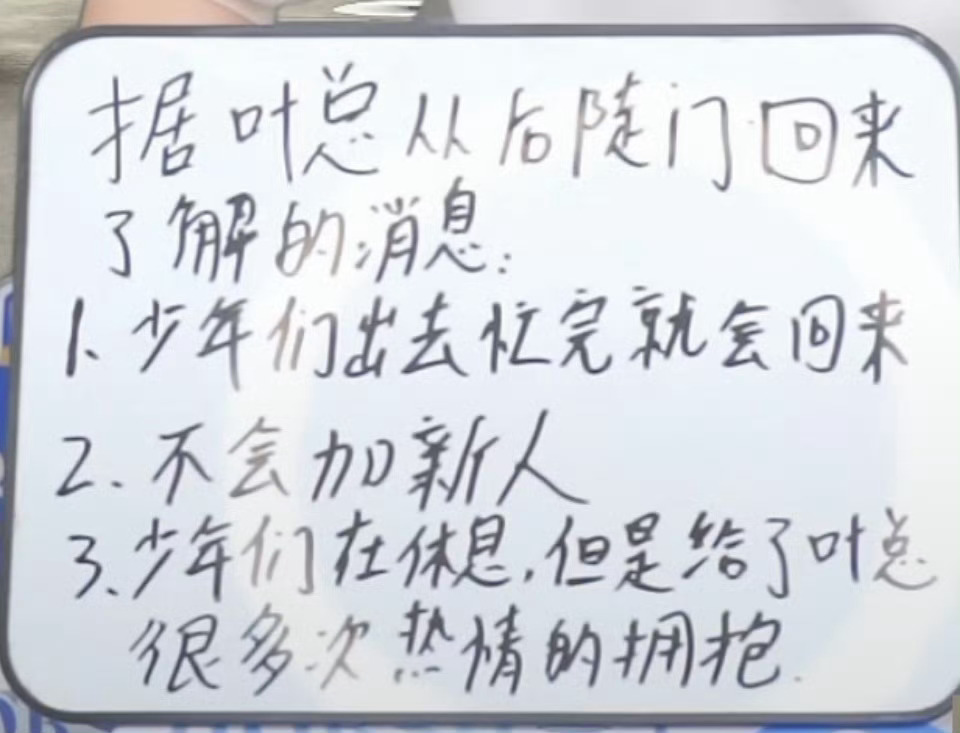 据叶总从后陡门回来
了解的消息:
1、少年们出去忙完就会回来
2.不会加新人
3、少年们在休息,但是给了叶总
很多次热情的拥抱.